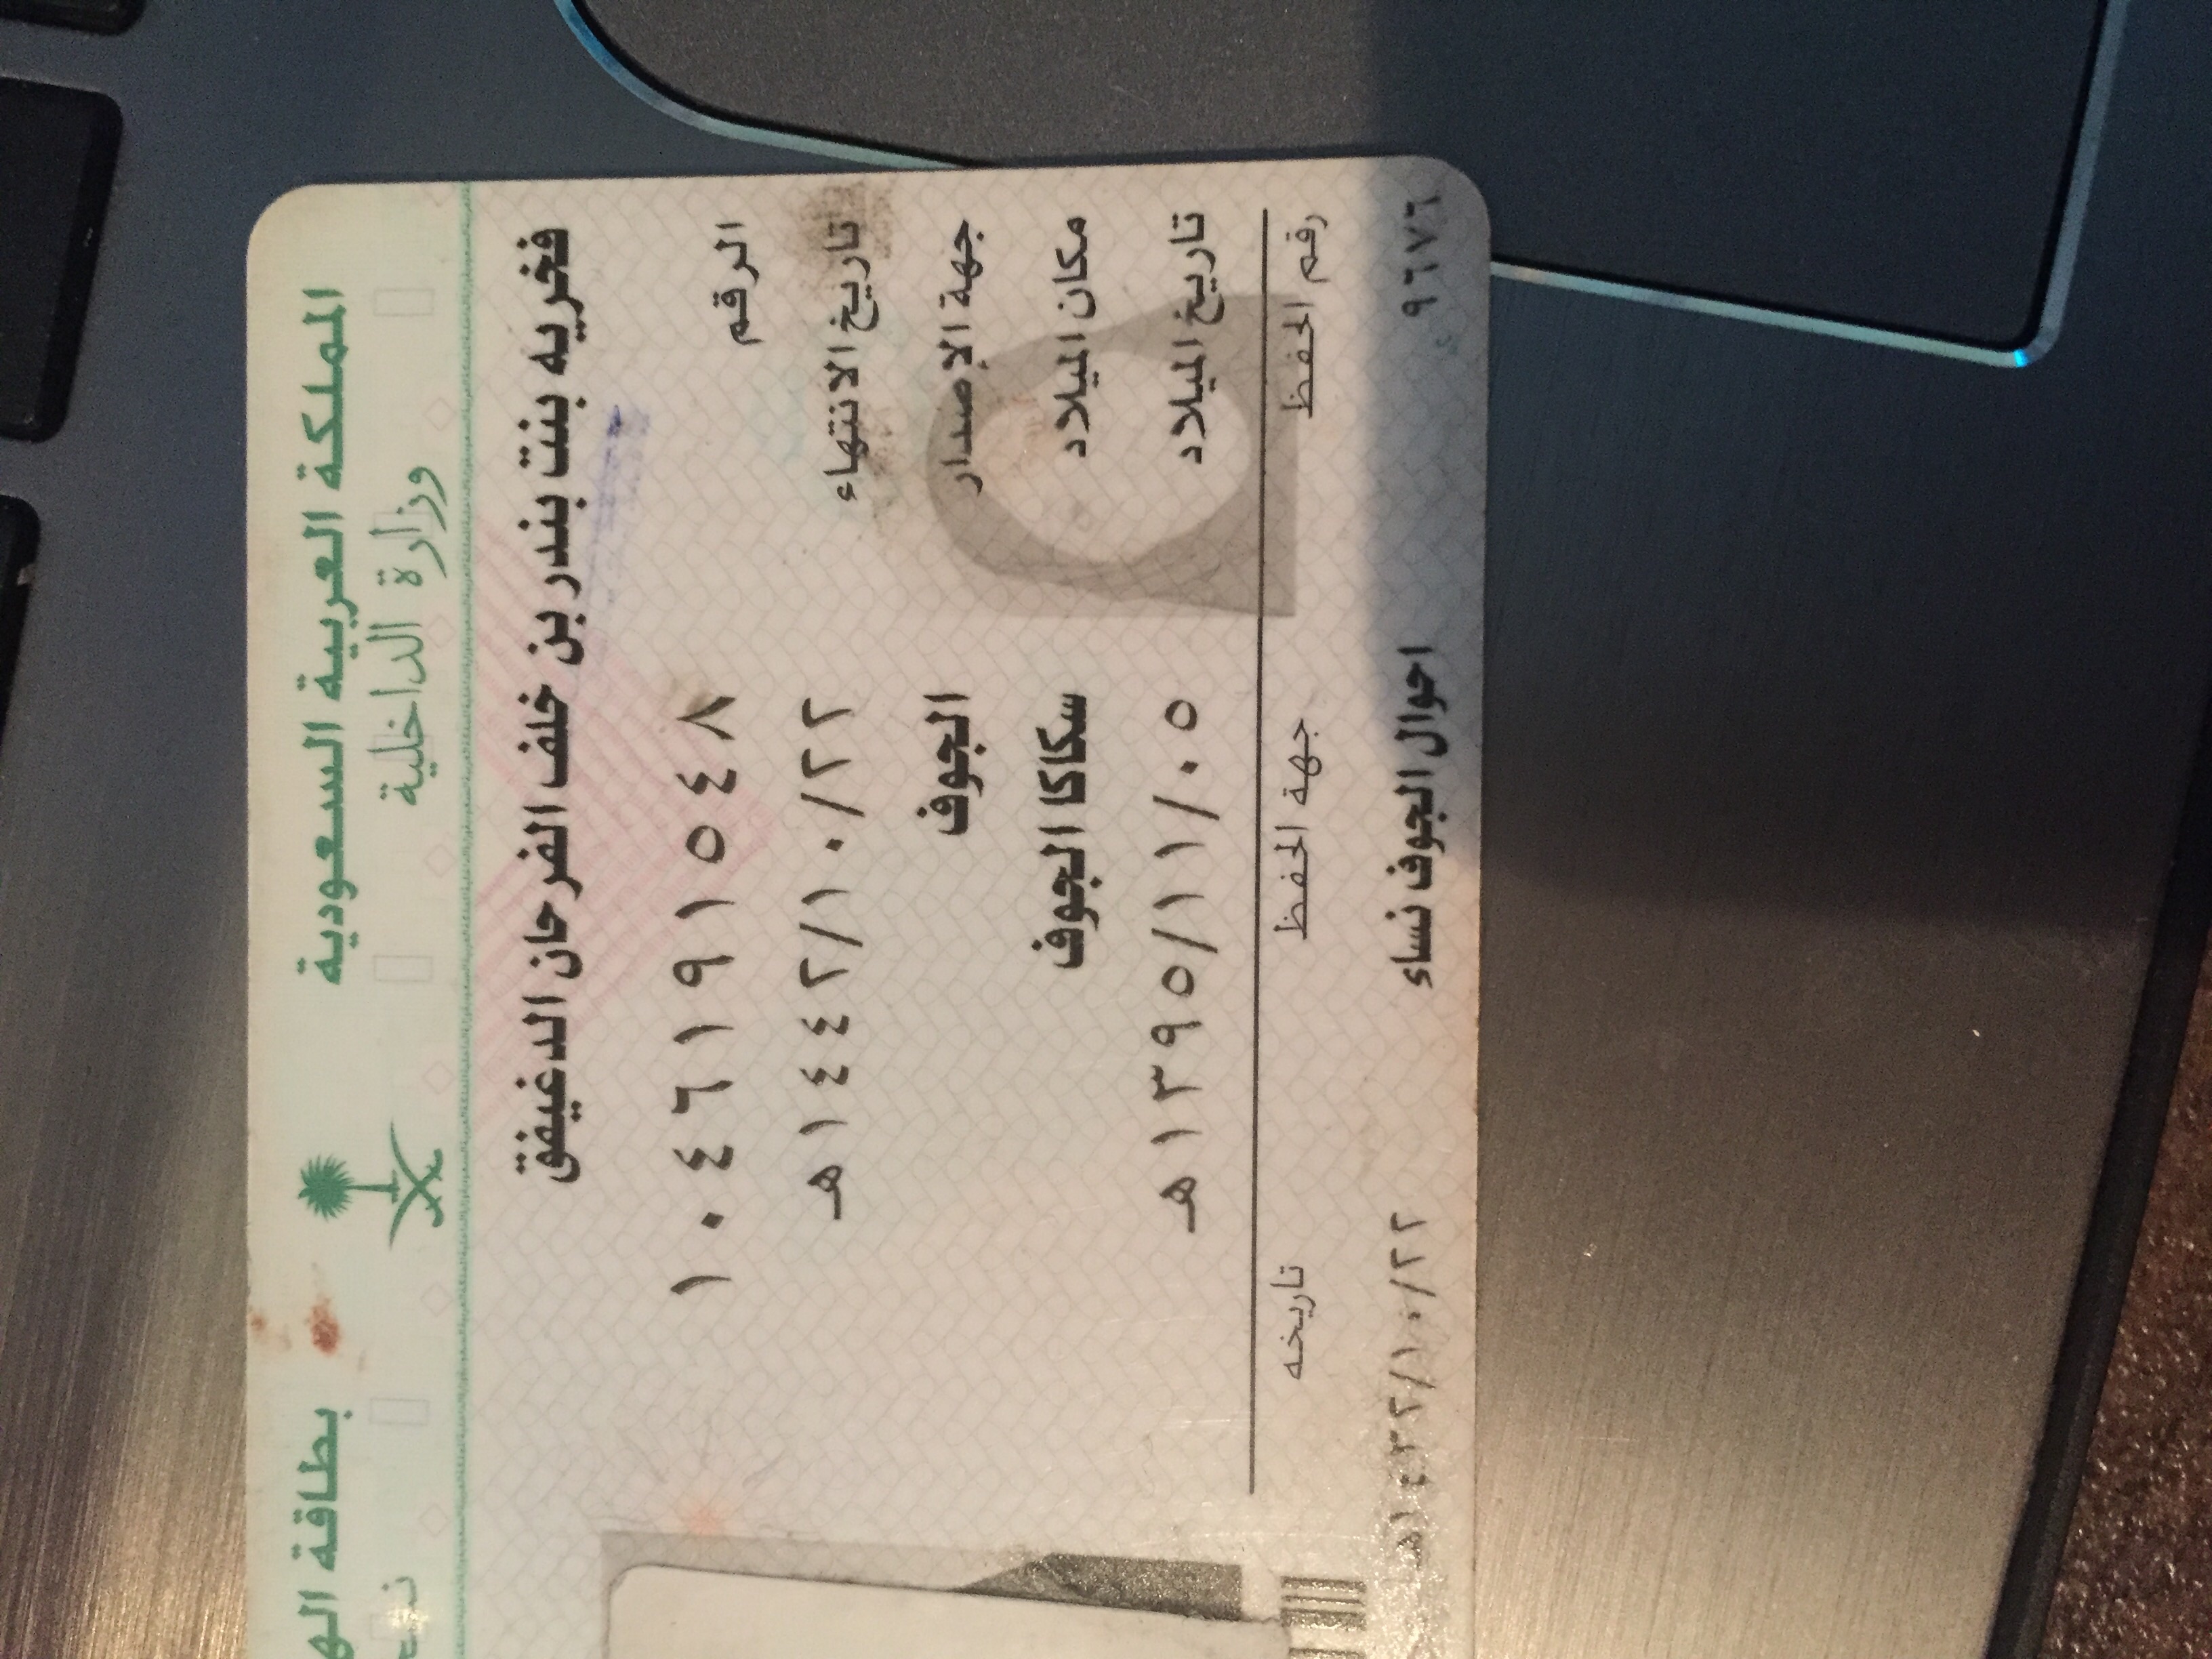 المملكة العربية السعودية
وزارة الداخلية
بطاقة
فخريه بنت بندر بن خلف الفرحان الدغيفق
الرقم ١٠٤٦١٩١٥٤٨
تاريخ الانتهاء ١٤٤٢/١٠/٢٢هـ
جهة الإصدار الجوف
مكان الميلاد سكاكا الجوف
تاريخ الميلاد ١٣٩٥/١١/٠٥هـ
رقم الحفظ جهة الحفظ تاريخه
٩٦٧٦ احوال الجوف نساء ١٤٣٢/١٠/٢٢هـ